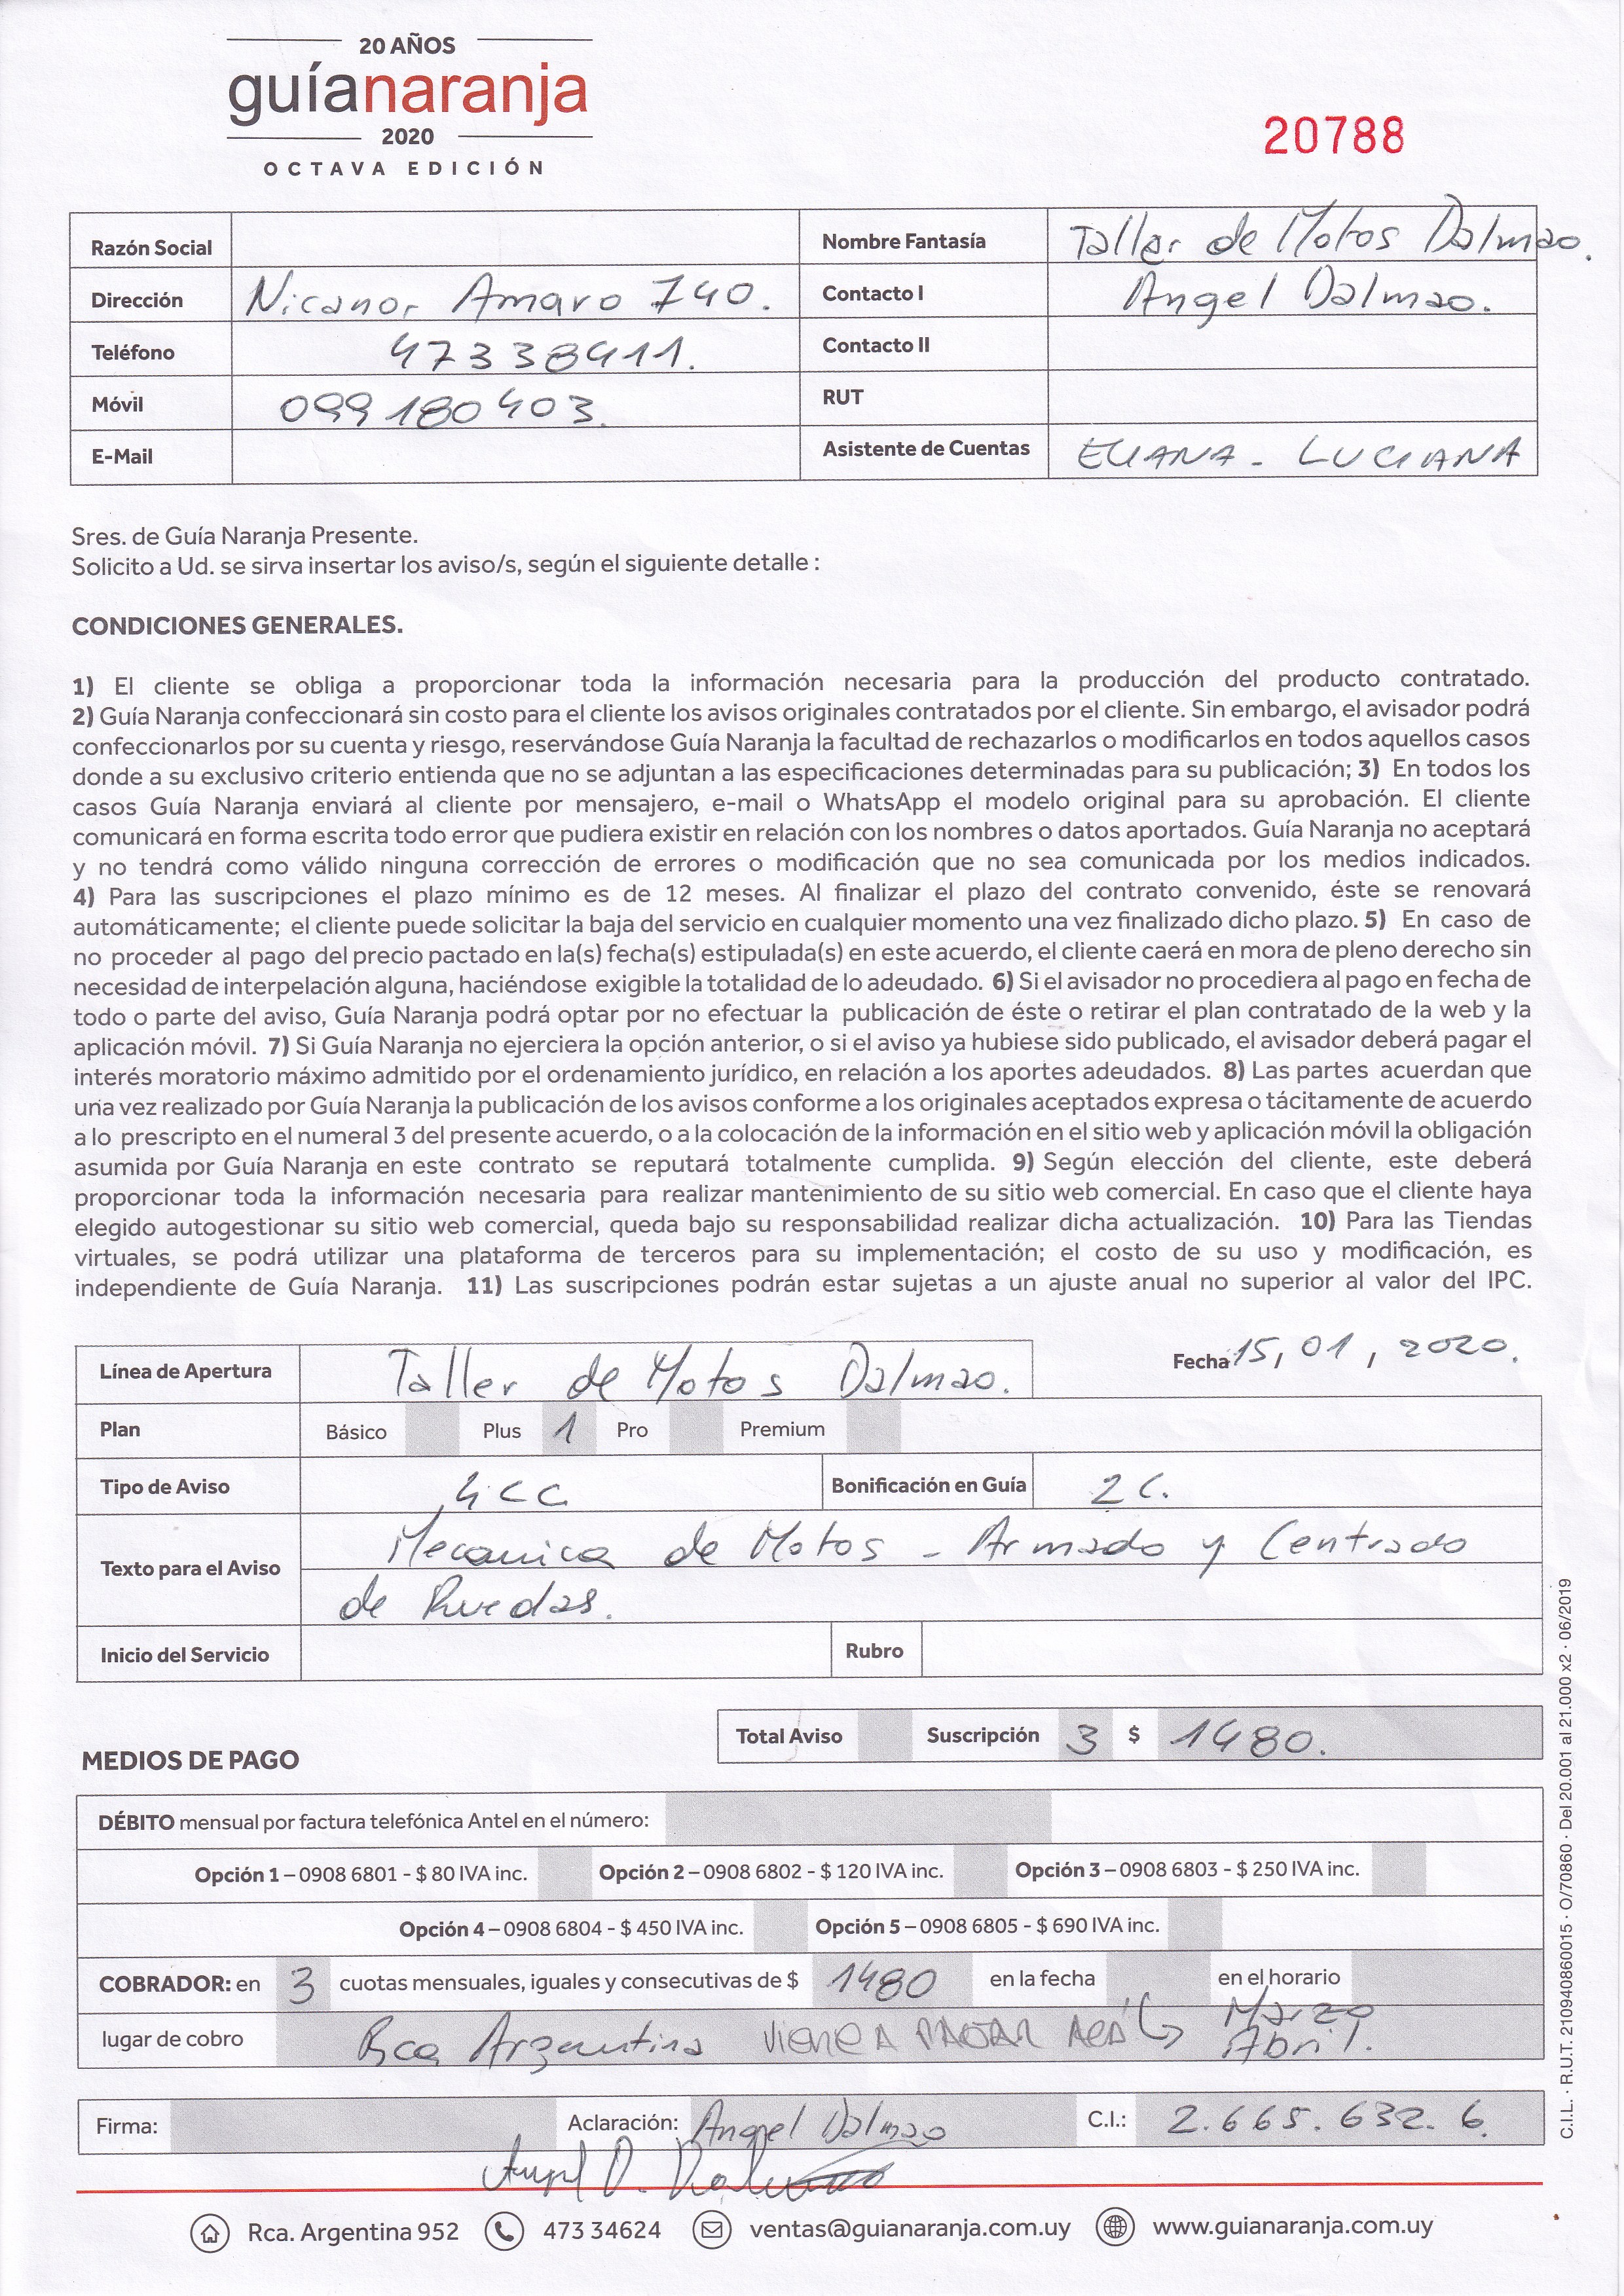 20 AÑOS
guíanaranja
2020
OCTAVA EDICIÓN
20788
Razón Social
Nombre Fantasía Taller de Motos Dalmao.
Dirección Nicanor Amaro 740.
Contacto I Angel Dalmao.
Teléfono 47338411.
Contacto II
Móvil 099180403.
RUT
E-Mail
Asistente de Cuentas ELIANA - LUCIANA
Sres. de Guía Naranja Presente.
Solicito a Ud. se sirva insertar los aviso/s, según el siguiente detalle :
CONDICIONES GENERALES.
1) El cliente se obliga a proporcionar toda la información necesaria para la producción del producto contratado.
2) Guía Naranja confeccionará sin costo para el cliente los avisos originales contratados por el cliente. Sin embargo, el avisador podrá
confeccionarlos por su cuenta y riesgo, reservándose Guía Naranja la facultad de rechazarlos o modificarlos en todos aquellos casos
donde a su exclusivo criterio entienda que no se adjuntan a las especificaciones determinadas para su publicación; 3) En todos los
casos Guía Naranja enviará al cliente por mensajero, e-mail o WhatsApp el modelo original para su aprobación. El cliente
comunicará en forma escrita todo error que pudiera existir en relación con los nombres o datos aportados. Guía Naranja no aceptará
y no tendrá como válido ninguna corrección de errores o modificación que no sea comunicada por los medios indicados.
4) Para las suscripciones el plazo mínimo es de 12 meses. Al finalizar el plazo del contrato convenido, éste se renovará
automáticamente; el cliente puede solicitar la baja del servicio en cualquier momento una vez finalizado dicho plazo. 5) En caso de
no proceder al pago del precio pactado en la(s) fecha(s) estipulada(s) en este acuerdo, el cliente caerá en mora de pleno derecho sin
necesidad de interpelación alguna, haciéndose exigible la totalidad de lo adeudado. 6) Si el avisador no procediera al pago en fecha de
todo o parte del aviso, Guía Naranja podrá optar por no efectuar la publicación de éste o retirar el plan contratado de la web y la
aplicación móvil. 7) Si Guía Naranja no ejerciera la opción anterior, o si el aviso ya hubiese sido publicado, el avisador deberá pagar el
interés moratorio máximo admitido por el ordenamiento jurídico, en relación a los aportes adeudados. 8) Las partes acuerdan que
una vez realizado por Guía Naranja la publicación de los avisos conforme a los originales aceptados expresa o tácitamente de acuerdo
a lo prescripto en el numeral 3 del presente acuerdo, o a la colocación de la información en el sitio web y aplicación móvil la obligación
asumida por Guía Naranja en este contrato se reputará totalmente cumplida. 9) Según elección del cliente, este deberá
proporcionar toda la información necesaria para realizar mantenimiento de su sitio web comercial. En caso que el cliente haya
elegido autogestionar su sitio web comercial, queda bajo su responsabilidad realizar dicha actualización. 10) Para las Tiendas
virtuales, se podrá utilizar una plataforma de terceros para su implementación; el costo de su uso y modificación, es
independiente de Guía Naranja. 11) Las suscripciones podrán estar sujetas a un ajuste anual no superior al valor del IPC.
Línea de Apertura Taller de Motos Dalmao.
Fecha 15, 01, 2020.
Plan Básico Plus 1 Pro Premium
Tipo de Aviso 4CC
Bonificación en Guía 2C.
Texto para el Aviso
Mecanica de Motos - Armado y Centrado
de Ruedas.
Inicio del Servicio
Rubro
Total Aviso Suscripción 3 $ 1480.
MEDIOS DE PAGO
DÉBITO mensual por factura telefónica Antel en el número:
Opción 1 – 0908 6801 - $ 80 IVA inc. Opción 2 – 0908 6802 - $ 120 IVA inc. Opción 3 – 0908 6803 - $ 250 IVA inc.
Opción 4 – 0908 6804 - $ 450 IVA inc. Opción 5 – 0908 6805 - $ 690 IVA inc.
COBRADOR: en 3 cuotas mensuales, iguales y consecutivas de $ 1480 en la fecha en el horario
lugar de cobro Rca Argentina VIENE A PAGAR ACÁ Marzo
Abril.
Firma:
Aclaración: Angel Dalmao
C.I.: 2.665.632.6
Rca. Argentina 952 473 34624 ventas@guianaranja.com.uy www.guianaranja.com.uy
C.I.L. · R.U.T. 210940860015 · O/70860 · Del 20.001 al 21.000 x2 · 06/2019